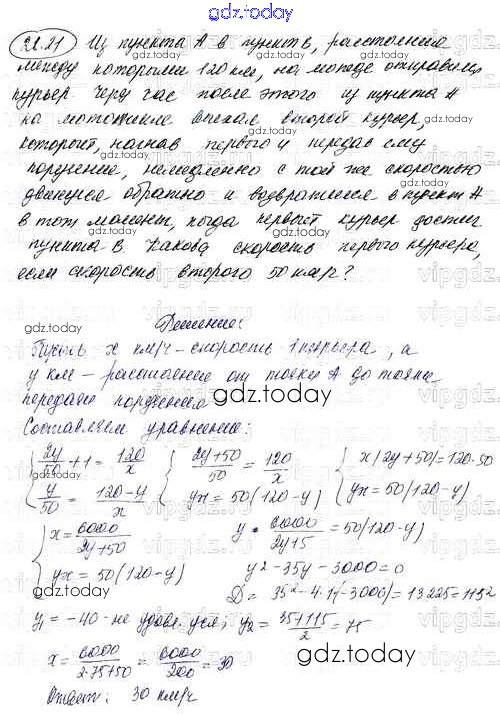 gdz.today
22.21 Из пункта А в пункт В, расстояние
между которыми 120 км, на мопеде отправился
курьер. Через час после этого из пункта А
на мотоцикле выехал второй курьер,
который, нагнав первого и передав ему
поручение, немедленно с той же скоростью
двинулся обратно и возвратился в пункт А
в тот момент, когда первый курьер достиг
пункта В. Какова скорость первого курьера,
если скорость второго 50 км/ч?
Решение:
Пусть x км/ч – скорость 1 курьера, а
y км – расстояние от точки А до точки
передачи поручения
gdz.today
Составляем уравнение:
{ 2y/50 + 1 = 120/x { (2y+50)/50 = 120/x { x(2y+50) = 120·50
{ y/50 = (120-y)/x yx = 50(120-y) yx = 50(120-y)
{ x = 6000/(2y+50) y · 6000/(2y+5 = 50(120-y)
yx = 50(120-y) y² - 35y - 3000 = 0
D = 35² - 4·1(-3000) = 13225 = 115²
y₁ = -40 - не удовл. усл; y₂ = (35+115)/2 = 75
x = 6000/(2·75+50) = 6000/200 = 30
gdz.today
Ответ: 30 км/ч